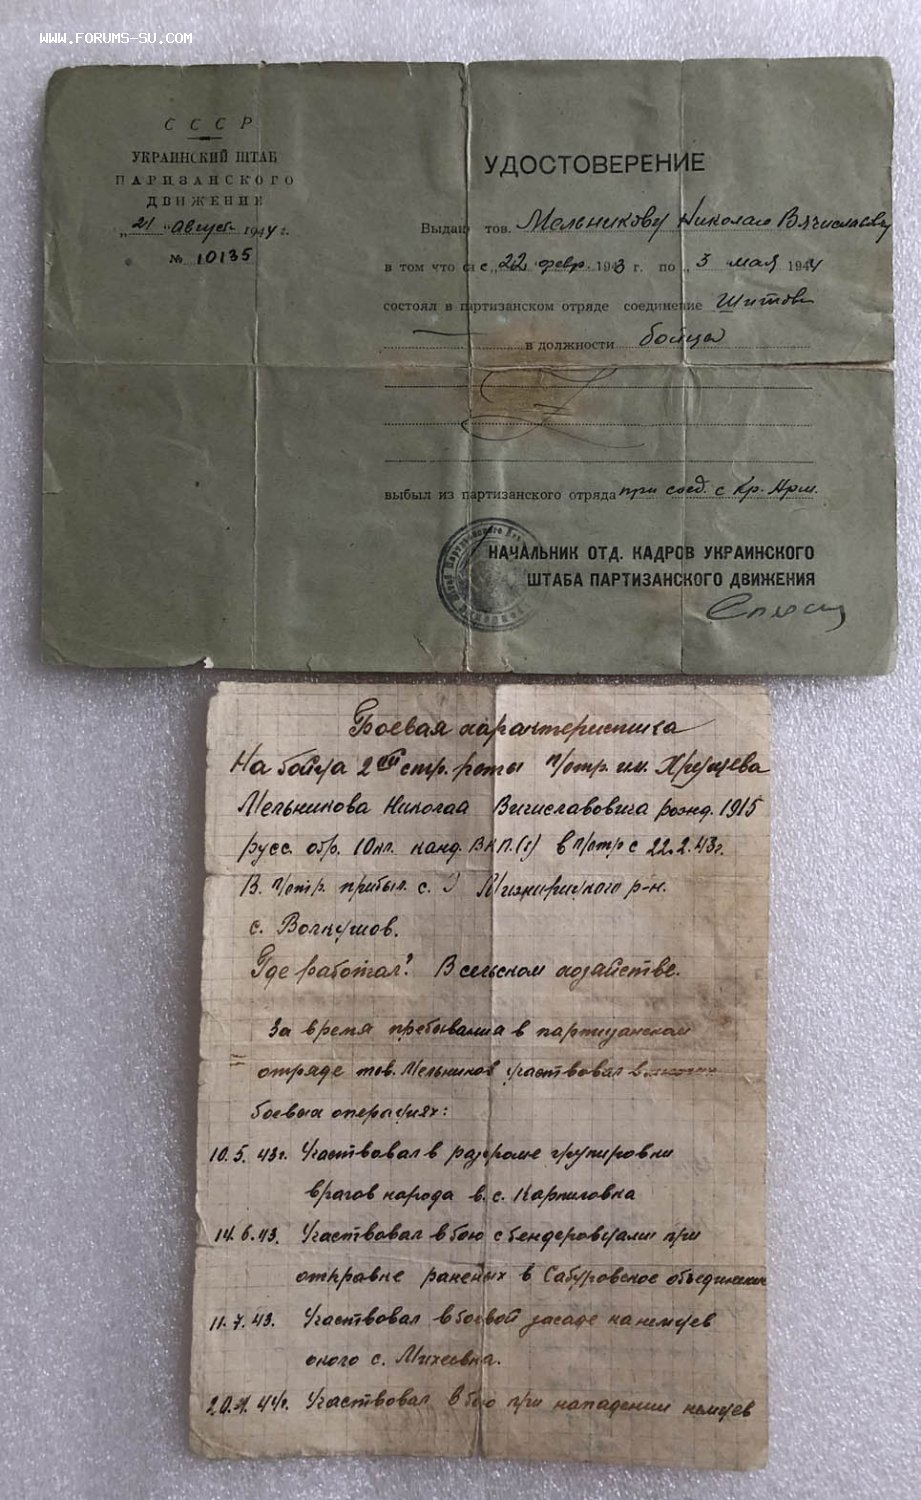 WWW.FORUMS-SU.COM
СССР
УКРАИНСКИЙ ШТАБ
ПАРТИЗАНСКОГО
ДВИЖЕНИЕ
„21 " август 1944 г.
№ 10135
УДОСТОВЕРЕНИЕ
Выдан тов. Мельникову Николаю Вячиславову
в том что с „22 " февр. 1943 г. по „3 мая 1944
состоял в партизанском отряде соединение Шитова
в должности бойца
выбыл из партизанского отряда при соед. с Кр. Арм.
НАЧАЛЬНИК ОТД. КАДРОВ УКРАИНСКОГО
ШТАБА ПАРТИЗАНСКОГО ДВИЖЕНИЯ
Боевая характеристика
На бойца 2ой стр. роты п/отр. им. Хрущева
Мельникова Николая Вичиславовича рожд. 1915
русс. обр. 10кл. канд. ВКП(б) в п/отр с 22.2.43г.
В п/отр. прибыл с. Межирицкого р-н.
с. Волкушов.
Где работал? В сельском хозяйстве.
За время пребывания в партизанском
отряде тов. Мельников участвовал в многих
боевых операциях:
10.5.43г. Участвовал в разгроме групировки
врагов народа в с. Карпиловка
14.6.43. Участвовал в бою с бендеровцами при
отправке раненых в Сабуровское объединение
11.7.43. Участвовал в боевой засаде на немцев
около с. Михеевка.
44г. Участвовал в бою при нападении немцев